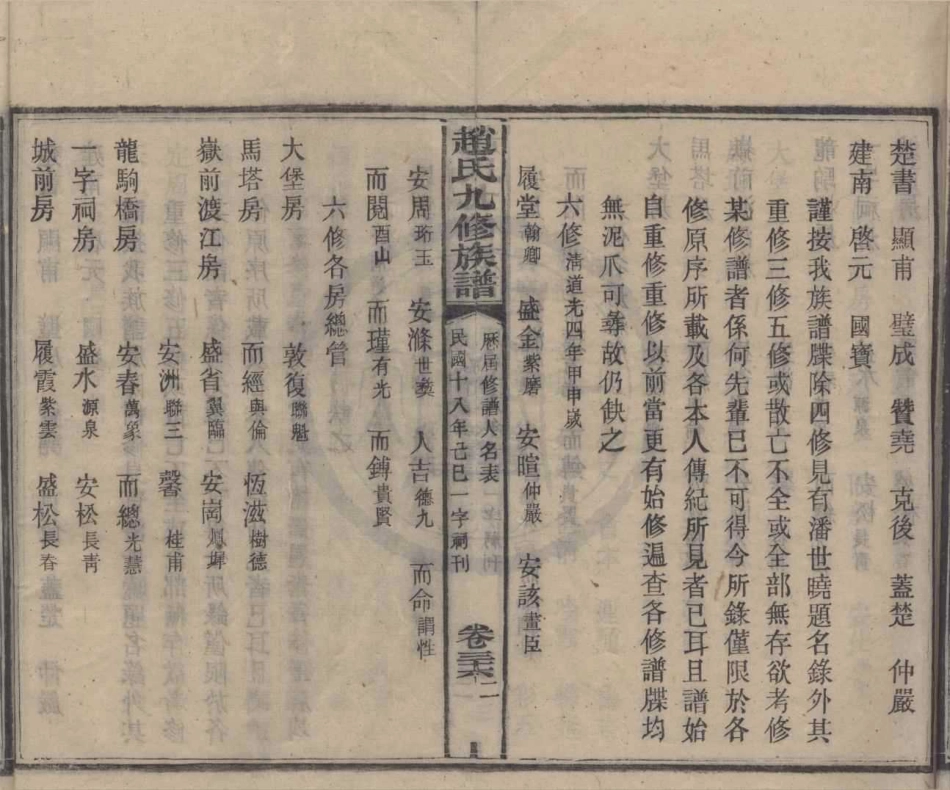 楚書　顯甫　璧成　贊堯　克後　蓋楚　仲嚴
建南　啓元　國寶
謹按我族譜牒除四修見有潘世曉題名錄外其
重修三修五修或散亡不全或全部無存欲考修
某修譜者係何先輩已不可得今所錄僅限於各
修原序所載及各本人傳紀所見者已耳且譜始
自重修重修以前當更有始修遍查各修譜牒均
無泥爪可尋故仍缺之
六修清道光四年甲申歲
履堂翰卿　盛金紫磨　安暄仲嚴　安該畫臣
趙氏九修族譜　歷屆修譜人名表　民國十八年己巳一字祠刊　卷三十六　二
安周珩玉　安滌世藝　人吉德九　而命謂性
而閱酉山　而瑾有光　而鎛貴賢
六修各房總管
大堡房　敦復聯魁
馬塔房　而經與倫　恆滋樹德
嶽前渡江房　盛省翼臨　安崗鳳墀
安洲聯三　馨　桂甫
龍駒橋房　安春萬象　而總光慧
一字祠房　盛水源泉　安松長青
城前房　履霞紫雲　盛松長春